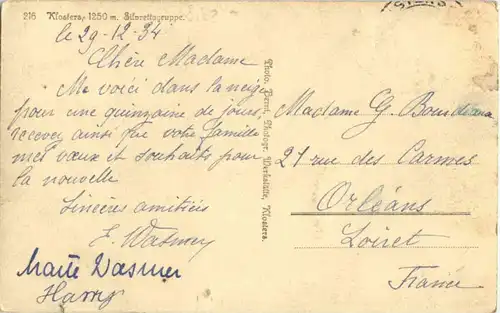 216 Klosters, 1250 m. Silvrettagruppe.
le 29-12-34
Chère Madame
Me voici dans la neige
pour une quinzaine de jours,
recevez ainsi que votre famille
mes vœux et souhaits pour
la nouvelle
Sincères amitiés
E. Wasmer
Marte Wasmer
Harry
Photo. Berni, Photogr. Werkstätte, Klosters.
Madame G.
21 rue des Carmes
Orléans
Loiret
France